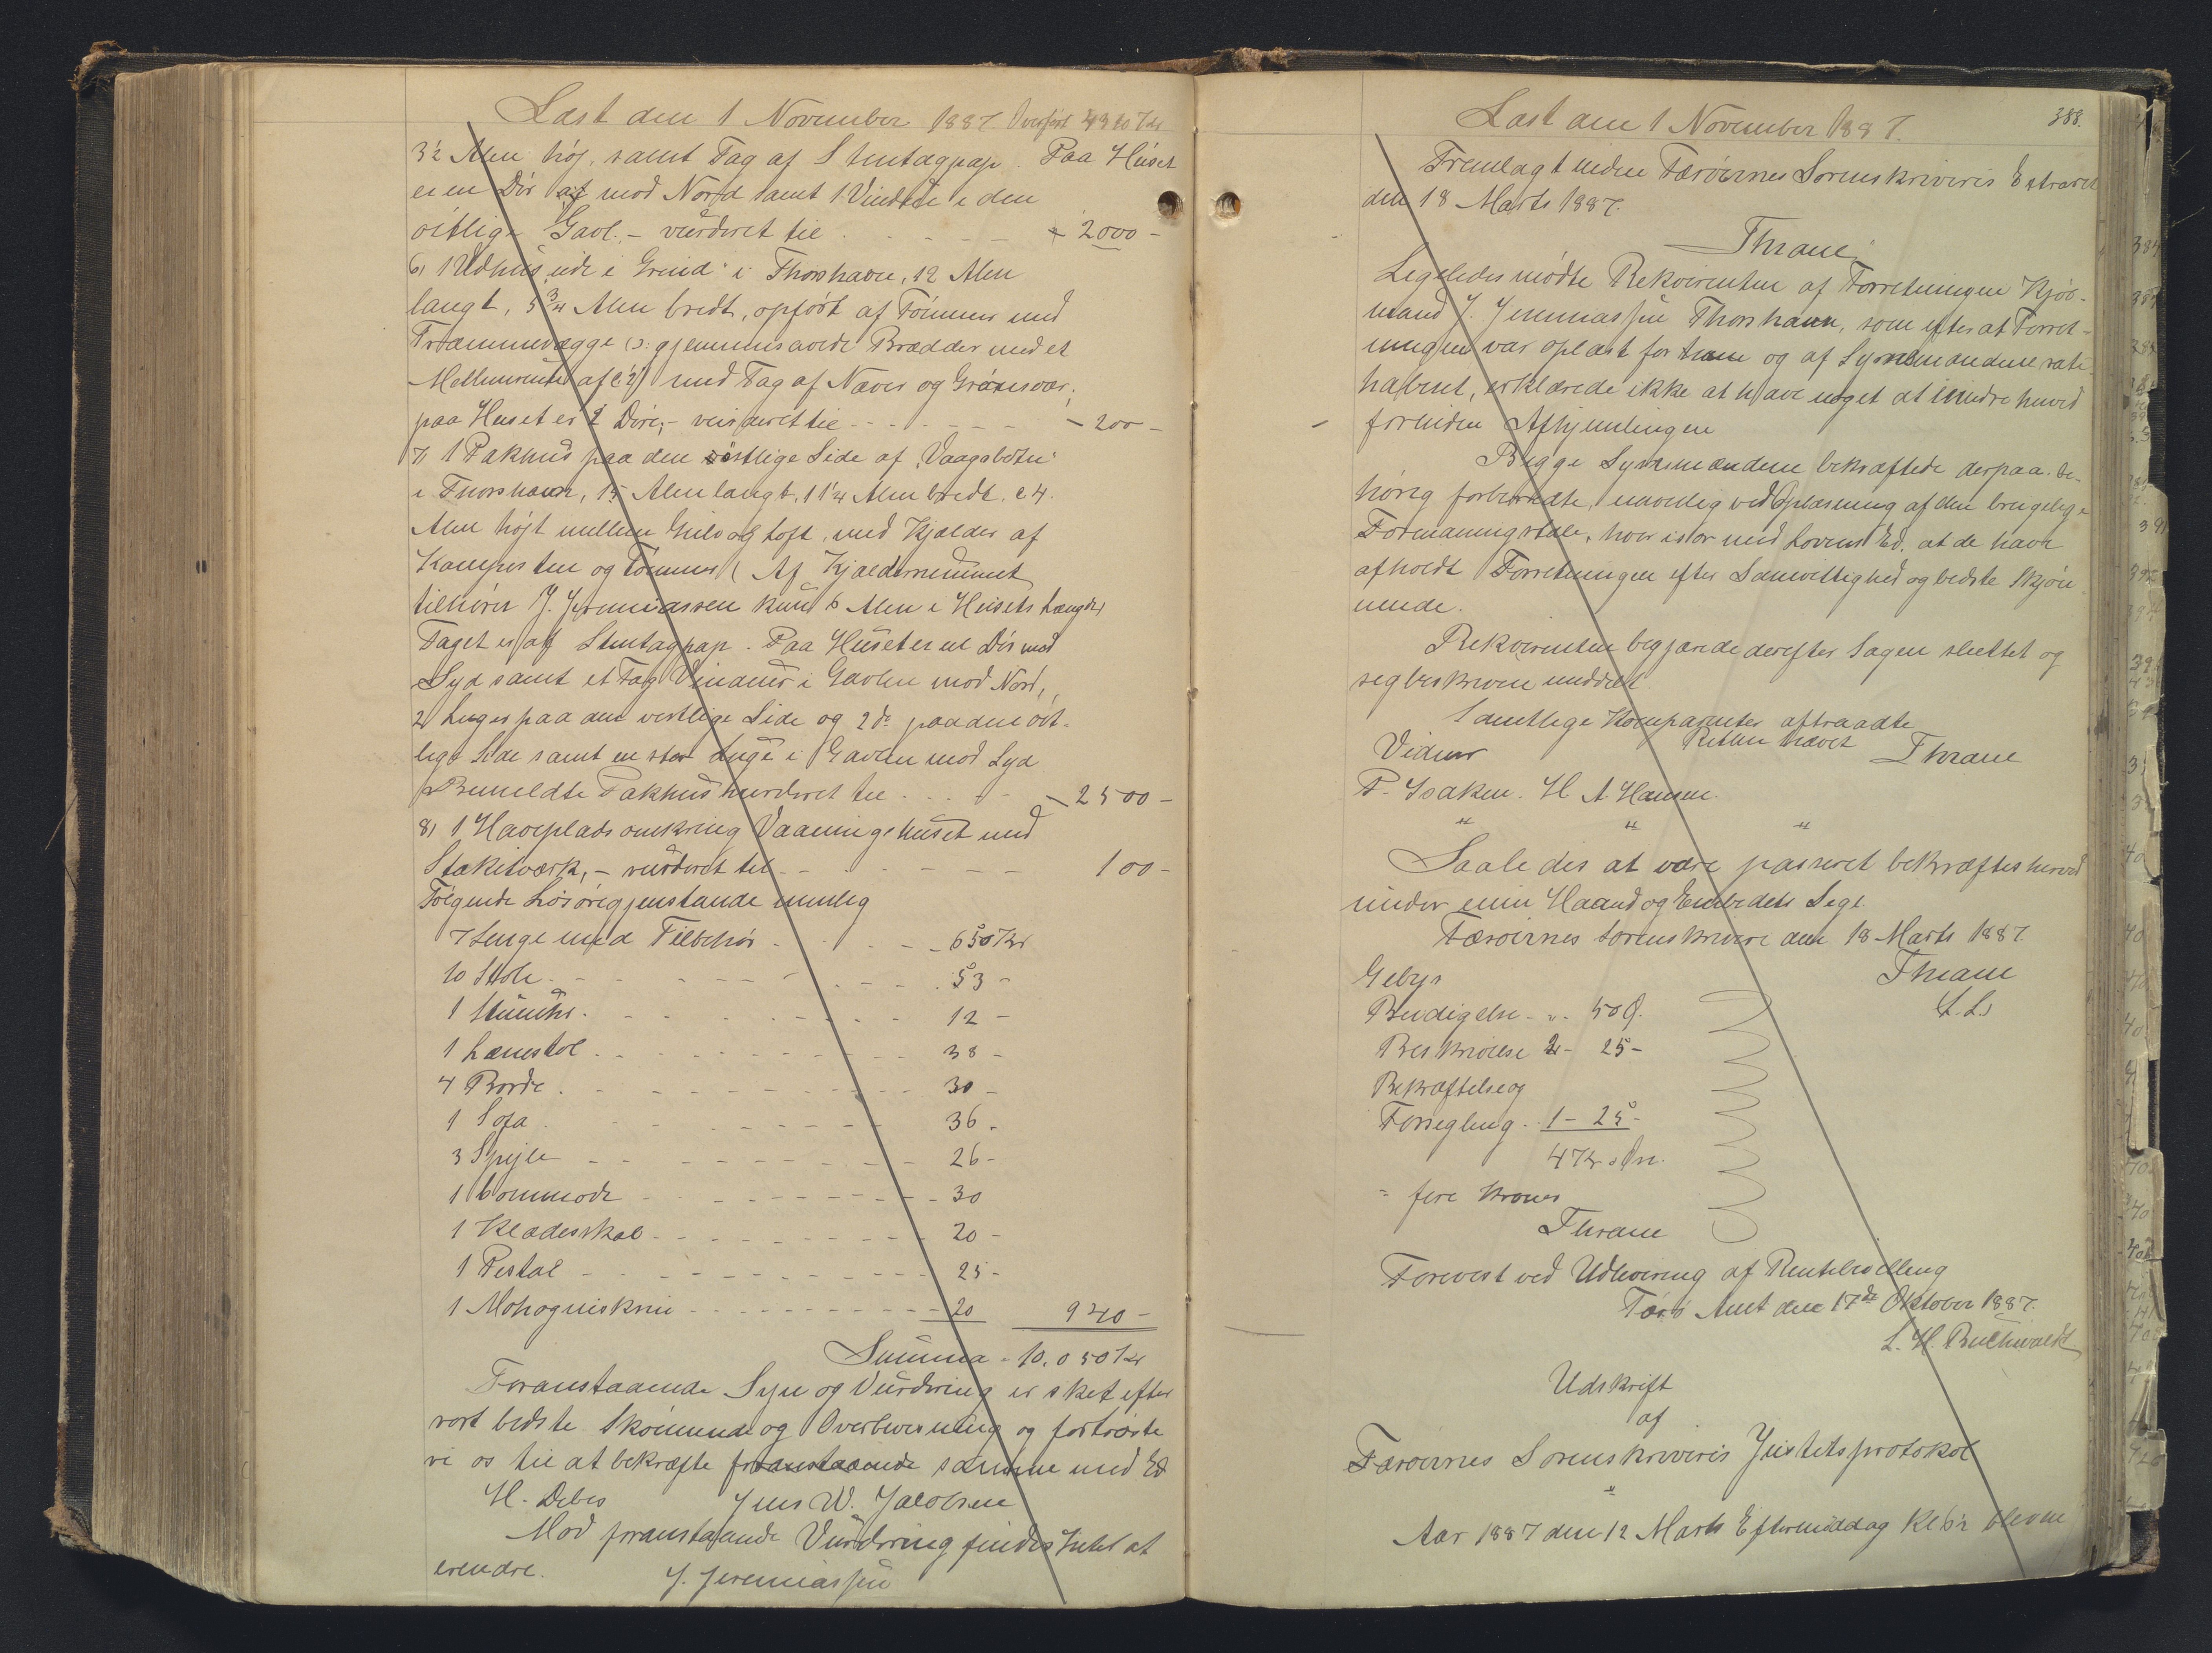 Læst den 1 November 1887. Overført 4310 Kr
3½ Alen høj, samt Tag af Stentagpap. Paa Huset
er en Dør mod Nord samt 1 Vindue i den
østlige Gavl, – vurderet til - 2000 -
6, 1 Udhus ude i Grind i Thorshavn, 12 Alen
langt, 5¾ Alen bredt, opført af Tømmer med
Trammevægge (ɔ: gjennemsavede Brædder med et
Mellemrum af c ½") med Tag af Næver og Grønsvær,
paa Huset er 2 Døre, – vurderet til - 200 -
7, 1 Pakhus paa den østlige Side af "Vaagsbotn"
i Thorshavn, 15 Alen langt, 11¼ Alen bredt, c 4.
Alen højt mellem Gulv og Loft, med Kjælder af
Kampesten og Tømmer (Af Kjælderrummet
tilhører J. Jeremiassen kun 6 Alen i Husets Længde)
Taget er af Stentagpap. Paa Huset er en Dør mod
Syd samt et Fag Vinduer i Gavlen mod Nord,
2 Luger paa den vestlige Side og 2 do paa den øst-
lige Side samt en stor Luge i Gavlen mod Syd
Bemeldte Pakhus vurderet til - 2500 -
8, 1 Haveplads omkring Vaaningshuset med
Stakitværk, – vurderet til 100 -
Følgende Løsøregjenstande nemlig
7 Senge med Tilbehør 650 Kr
10 Stole 53 -
1 Stueuhr 12 -
1 Lænestol 38 -
4 Borde 30 -
1 Sofa 36 -
3 Spejle 26 -
1 Commode 30
1 Klædeskab 20 -
1 Pistal 25 -
1 Mahogniskrin 20 940 -
Summa - 10.050 Kr
Foranstaaende Syn og Vurdering er sket efter
vort bedste Skjønnende og Overbevisning og fortrøste
vi os til at bekræfte foranstaaende samme med Ed
H. Debes Jens W. Jacobsen
Mod foranstaaende Vurdering findes Intet at
erindre. J. Jeremiassen
Læst den 1 November 1887.
388.
Fremlagt inden Færøernes Sorenskriveris Extraret
den 18 Marts 1887.
Thrane
Ligeledes mødte Rekvirenten af Forretningen Kjøb-
mand J. Jeremiassen Thorshavn, som efter at Forret-
ningen var oplæst for ham og af Synsmændene rati-
haberet, erklærede ikke at have noget at erindre hvorved
foruden Afhjemlingen
Begge Synsmændene bekræftede derpaa be-
hørig forberedte, navnlig ved Oplæsning af den brugelige
Formaningstale, hver især med Lovens Ed, at de have
afholdt Forretningen efter Samvittighed og bedste Skjøn-
nende.
Rekvirenten begjærede derefter Sagen sluttet og
sig beskreven meddelt
Samtlige Komparenter aftraadte
Retten hævet
Vidner Thrane
P. Isaksen. H. A. Hansen.
" " "
Saaledes at være passeret bekræftes herved
under min Haand og Embedets Segl.
Færøernes Sorenskriveri den 18 Marts 1887.
Gebyr Thrane
Beedigelse - " - 50 Ø. (L. S.)
Beskrivelse 2 - 25 -
Bekræftelse og
Forsegling 1 - 25 -
4 Kr. " Øre.
= fire Kroner
Thrane
Forevist ved Udlevering af Rentebevilling
Færø Amt den 17de Oktober 1887.
L. H. Buchwaldt
Udskrift
af
Færøernes Sorenskriveris Justitsprotokol
"
Aar 1887 den 12 Marts Eftermiddag Kl 6½ bleve